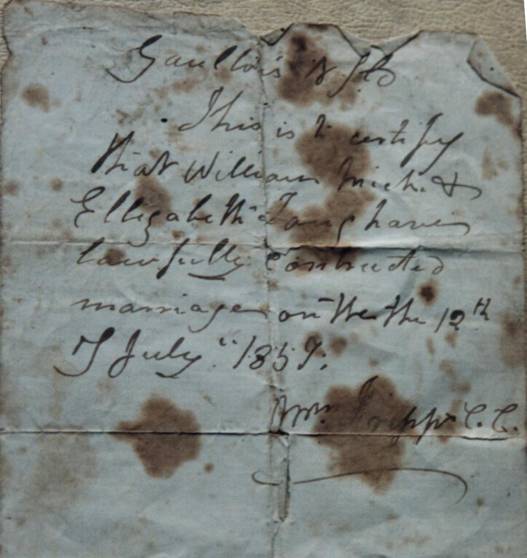 Gaultois
This is to certify
that William Mich. &
Ellizabeth Tong have
lawfully Contracted
marriage on the the 12th
of July 1857.
Wm. C.C.